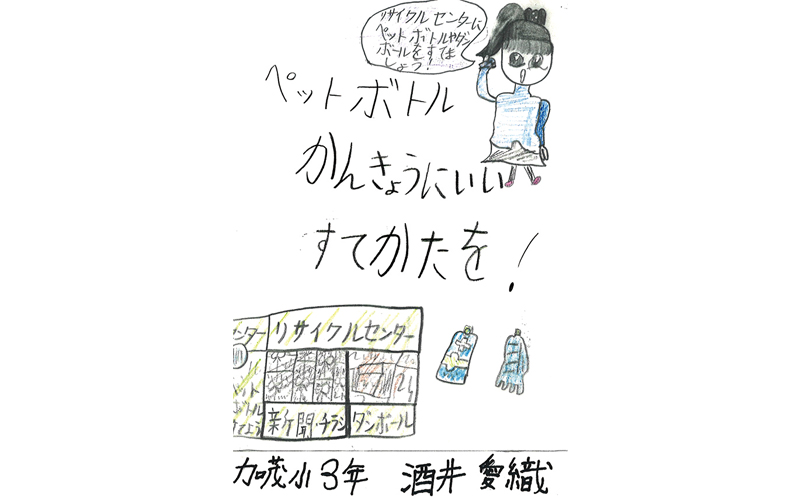 リサイクルセンターに
ペットボトルやダン
ボールをすてま
しょう!
ペットボトル
かんきょうにいい
すてかたを!
ンター
リサイクルセンター
ット
ボトル
すてよう
新聞・チラシ
ダンボール
加茂小3年 酒井愛織